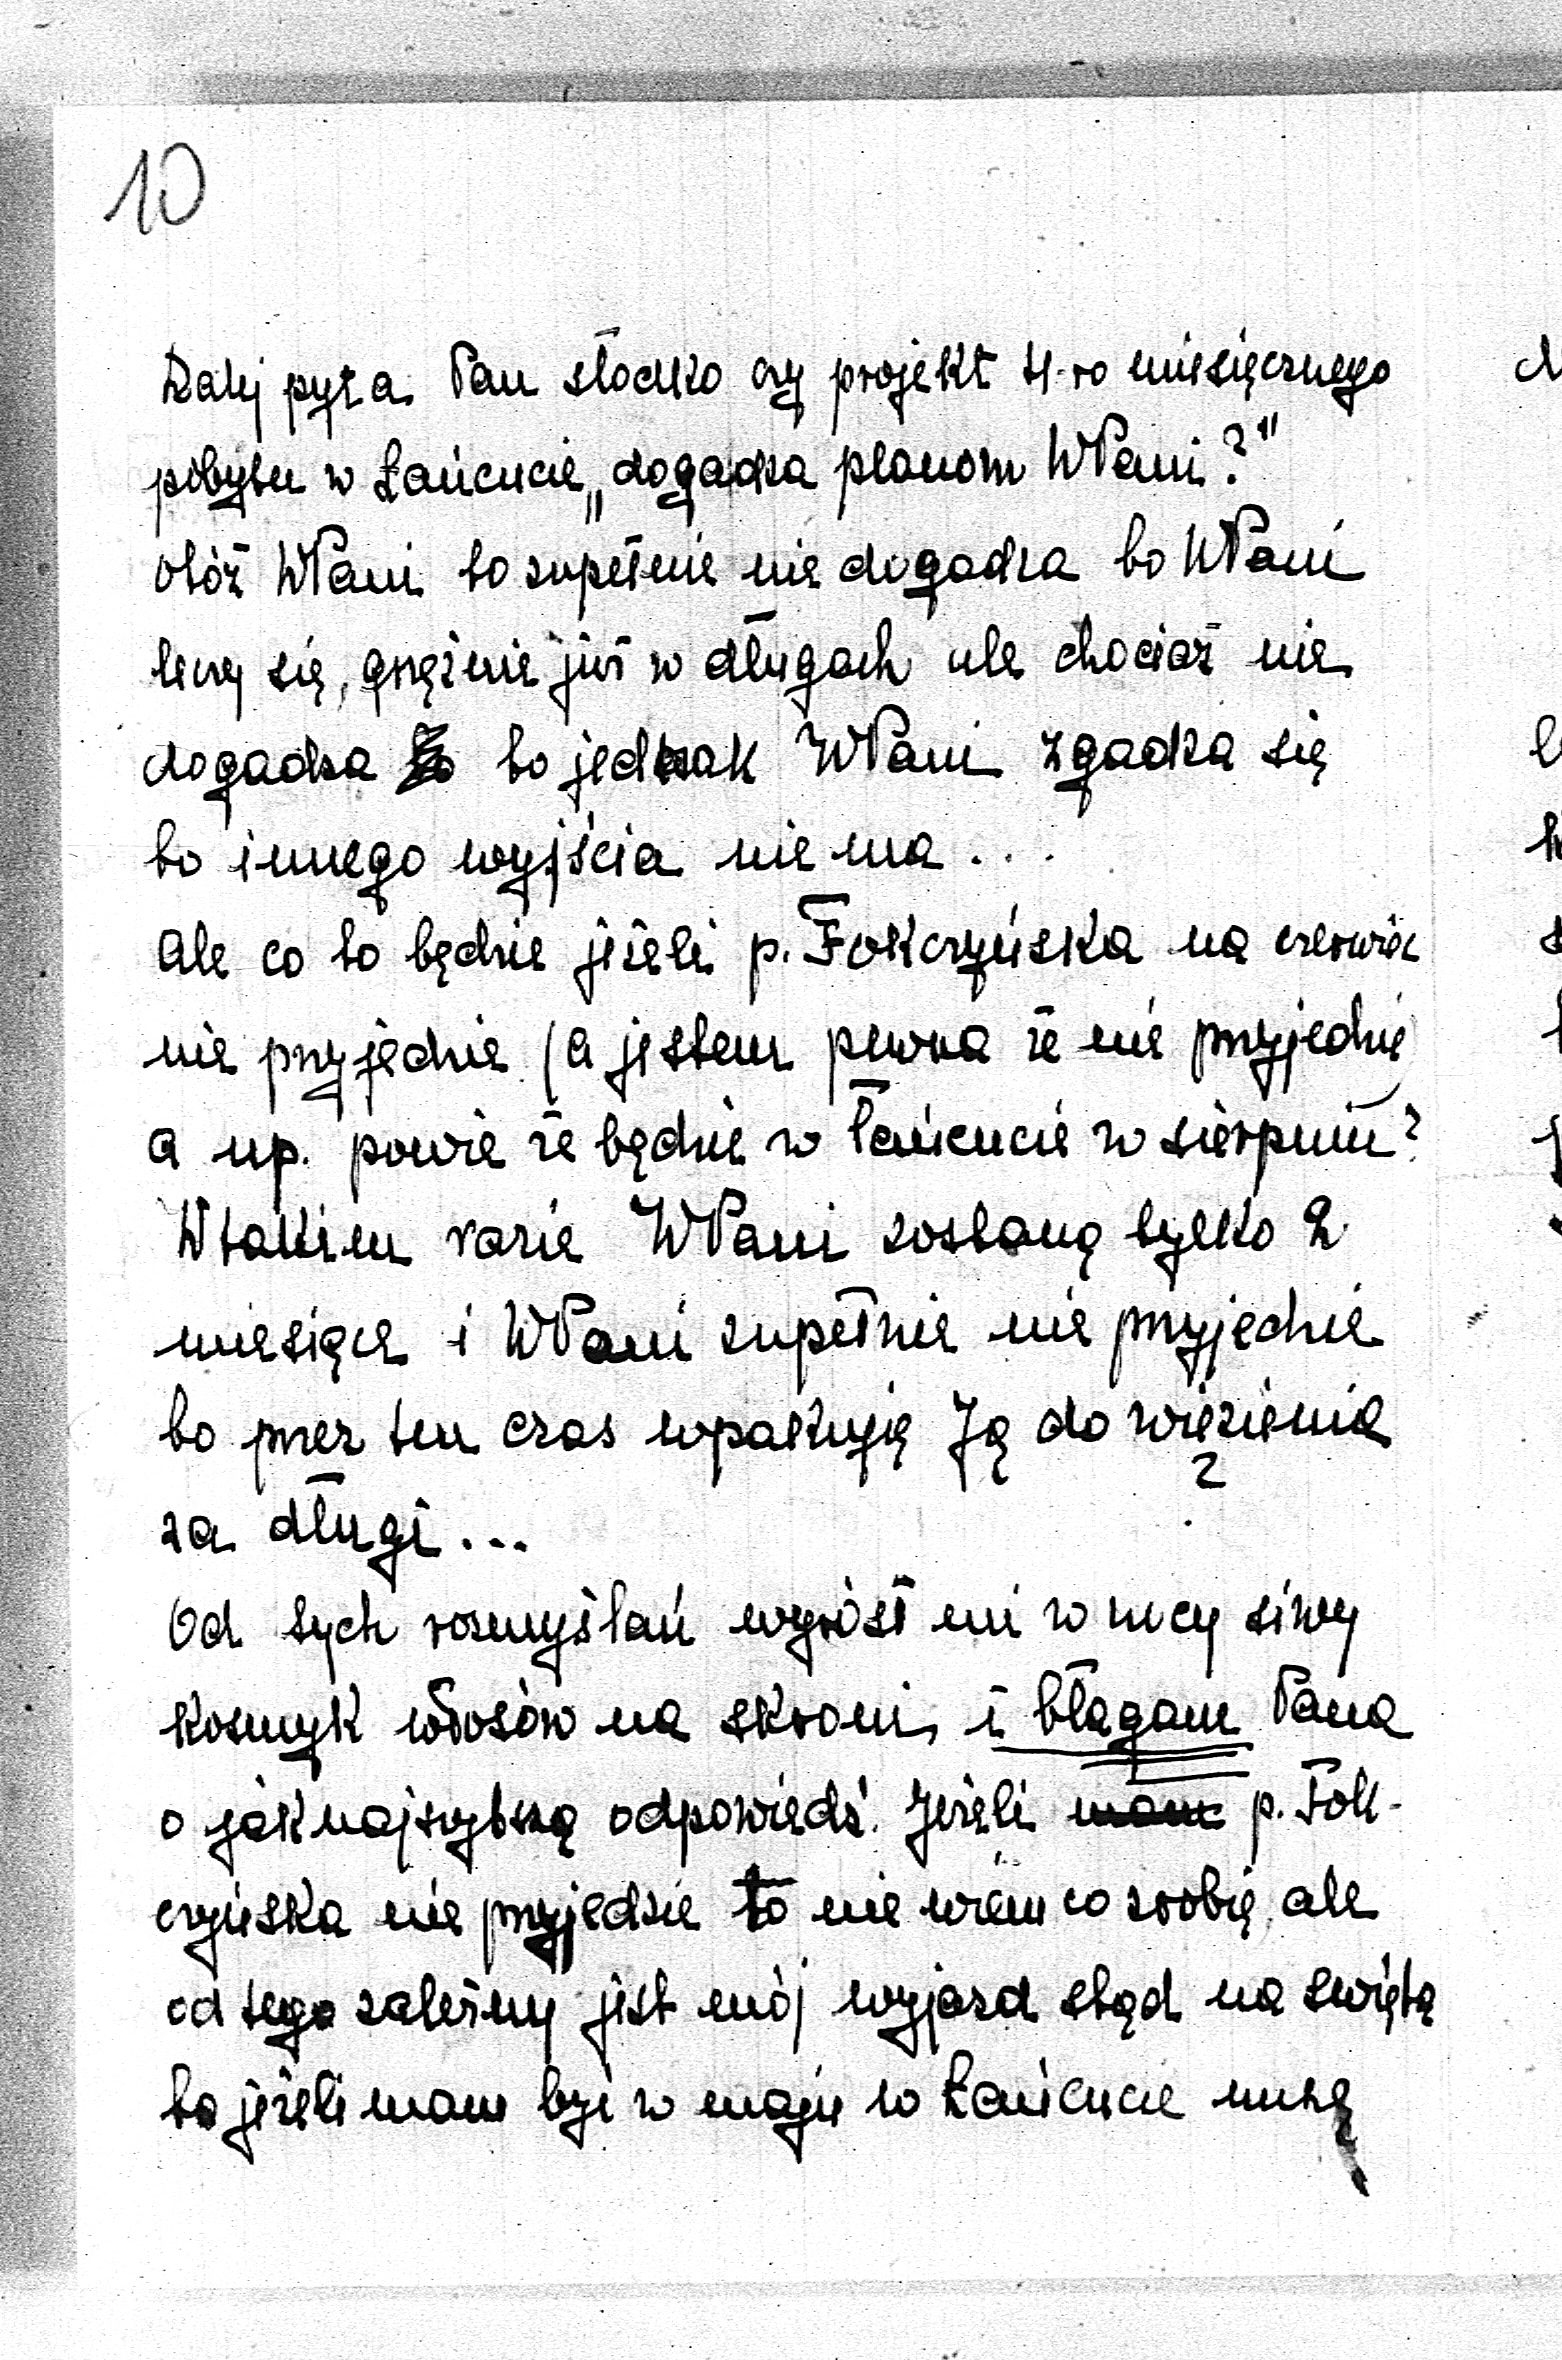 10
Dalej pyta Pan słodko czy projekt 4-ro miesięcznego
pobytu w Łańcucie „dogadza planom WPani?"
Otóż WPani to zupełnie nie dogadza bo WPani
leczy się, grzęźnie już w długach ale chociaż nie
dogadza to jednak WPani zgadza się
bo innego wyjścia nie ma...
Ale co to będzie jeżeli p. Fołczyńska na czerwiec
nie przyjedzie (a jestem pewna że nie przyjedzie)
a np. powie że będzie w Łańcucie w sierpniu?
W takim razie WPani zostaną tylko 2
miesiące i WPani zupełnie nie przyjedzie
bo przez ten czas wpakują Ją do więzienia
za długi...
?
Od tych rozmyślań wyrósł mi w nocy siwy
kosmyk włosów na skroni, i błagam Pana
o jaknajszybszą odpowiedź. Jeżeli p. Foł-
czyńska nie przyjedzie to nie wiem co zrobię, ale
od tego zależny jest mój wyjazd stąd na święta
bo jeżeli mam być w maju w Łańcucie muszę